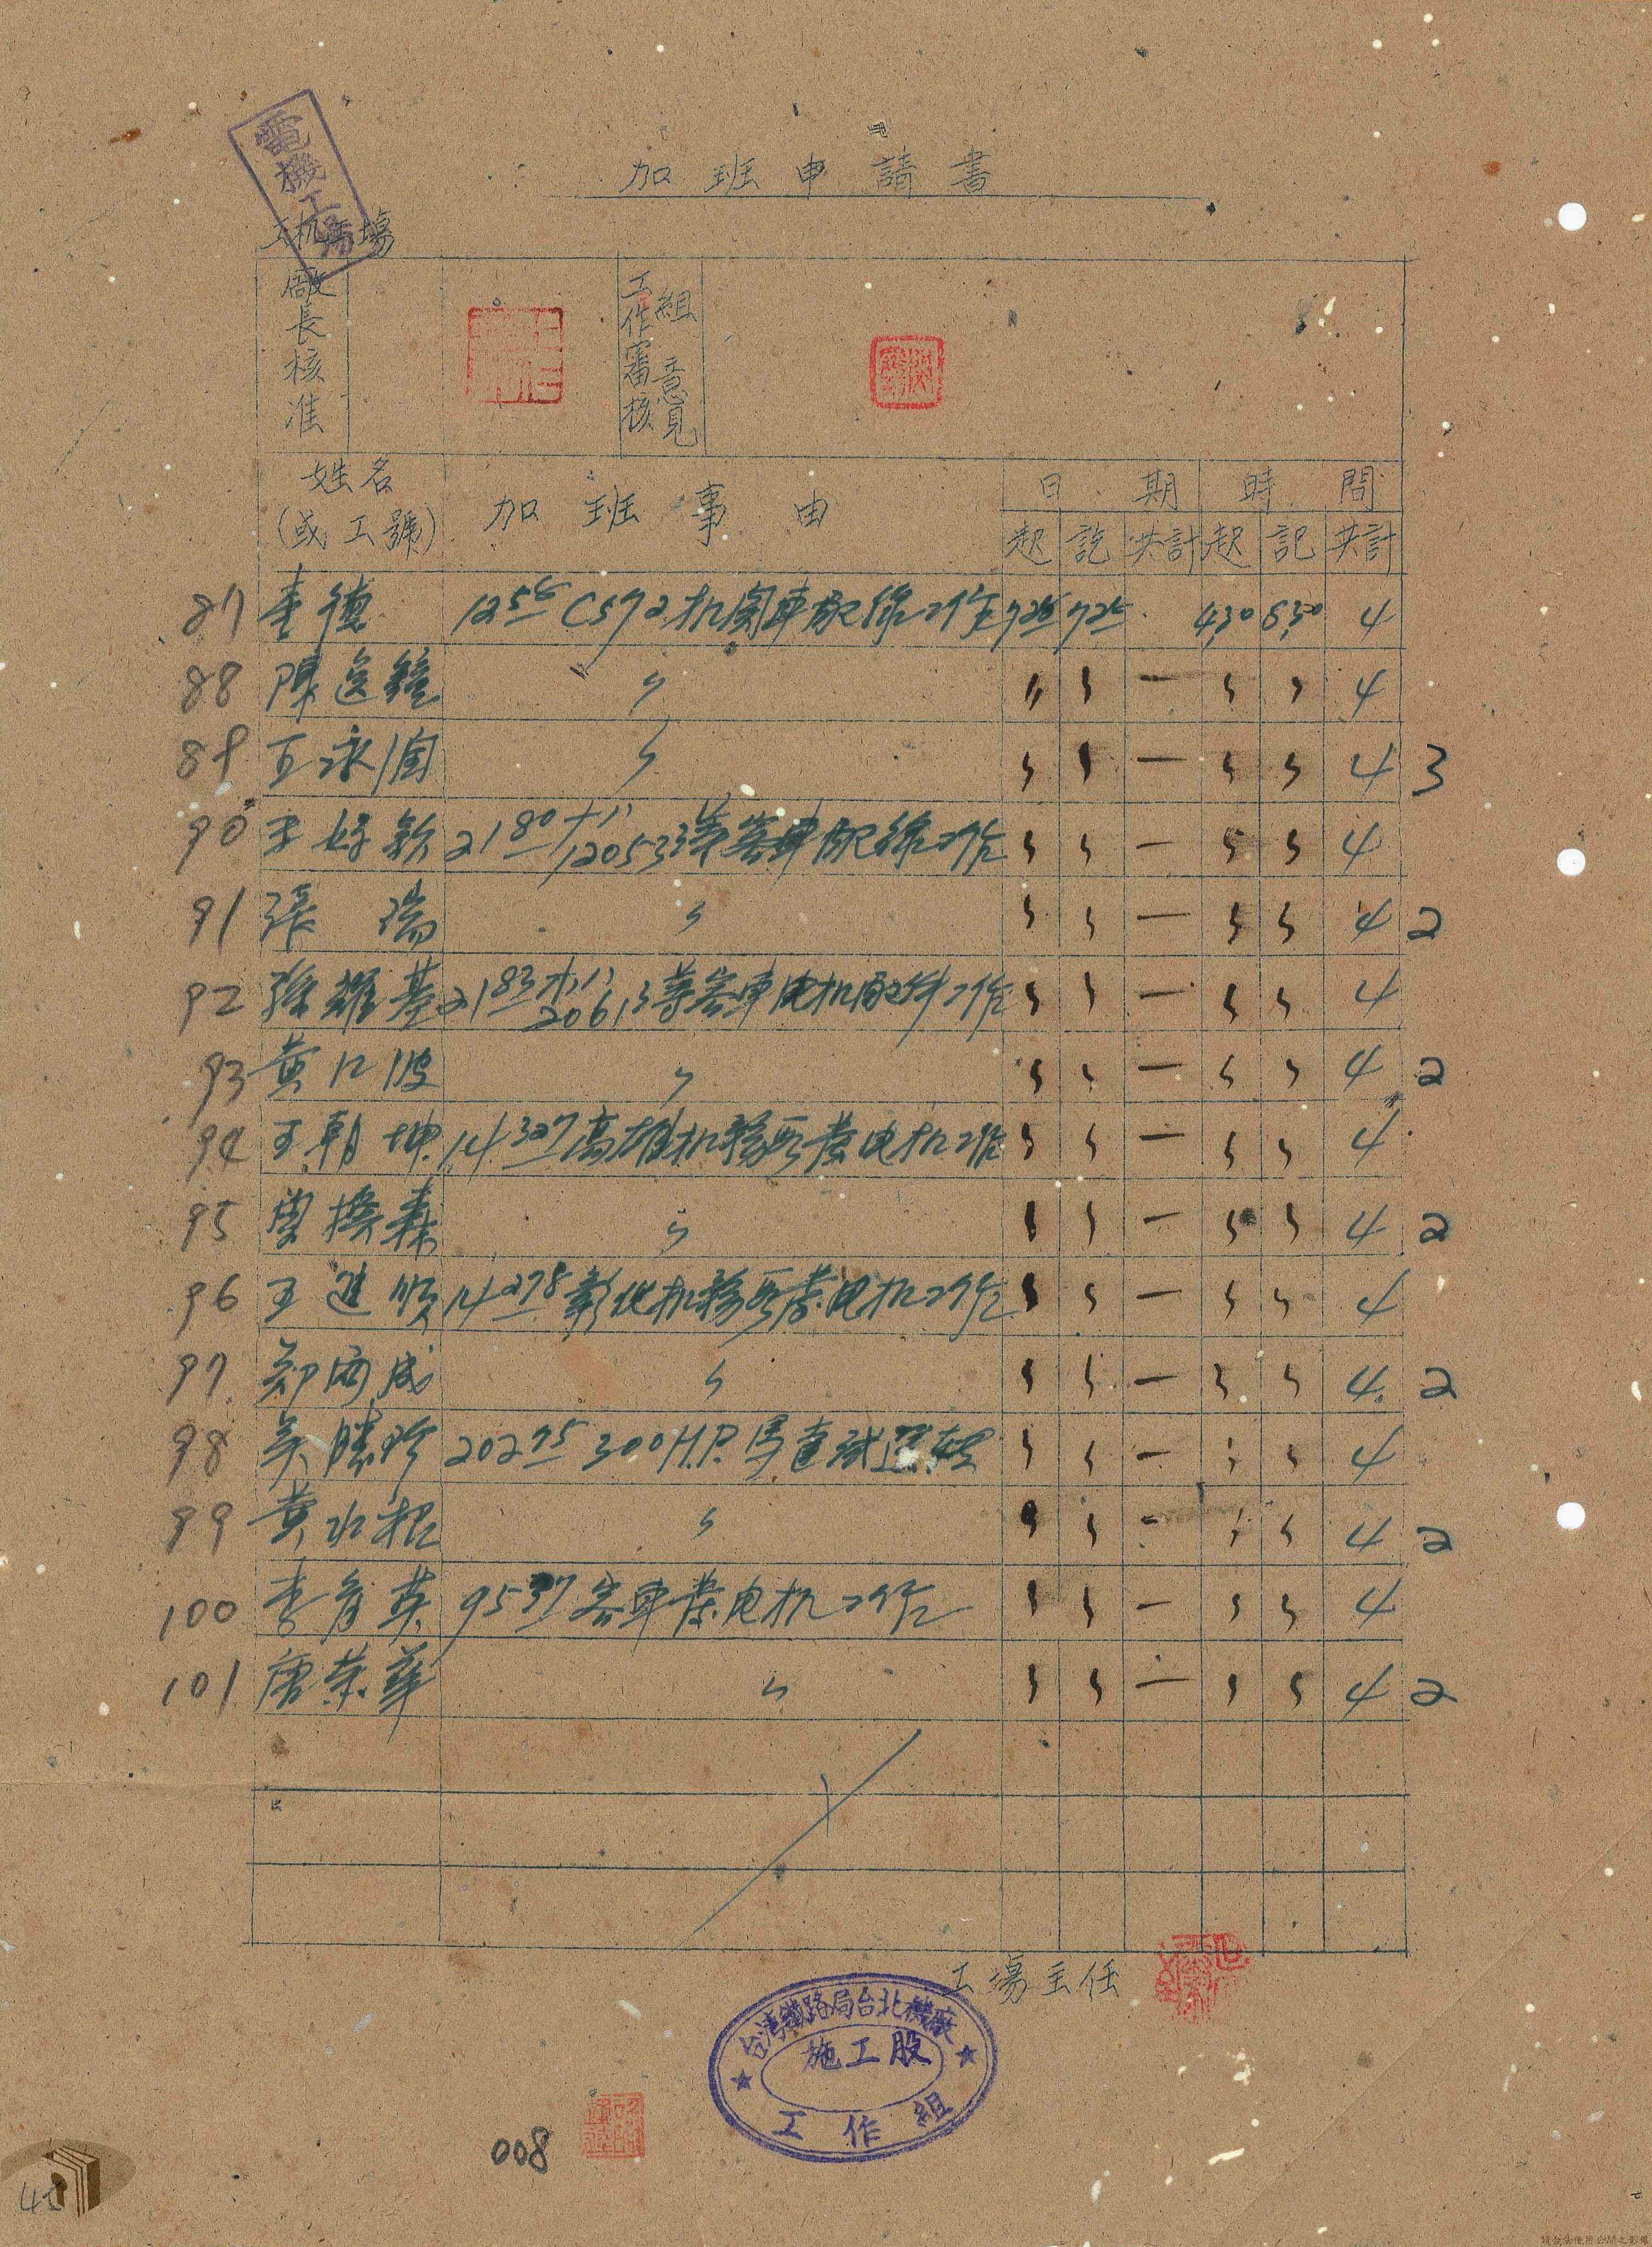 加班申請書
電機工場
廠長核准
工作組審核意見
姓名(或工號) 加班事由 日期 時間
起 訖 共計 起 記 共計
87 李德 1258 C572机関車配線工作 725 725 430 830 4
88 陳 〃 〃 〃 一 〃 〃 4
89 王永 〃 〃 〃 一 〃 〃 4 3
90 王好欽 2180 12053等客車配線工作 〃 〃 一 〃 〃 4
91 張瑞 〃 〃 〃 一 〃 〃 4 2
92 基 2183 20613等客車电机配件工作 〃 〃 一 〃 〃 4
93 黄 波 〃 〃 〃 一 〃 〃 4 2
94 王朝坤 14327 高雄机務段発电机工作 〃 〃 一 〃 〃 4
95 森 〃 〃 〃 一 〃 〃 4 2
96 王進順 14278 彰化机務段発电机工作 〃 〃 一 〃 〃 4
97 鄭西成 〃 〃 〃 一 〃 〃 4 2
98 吳勝珍 20275 300H.P.馬達試運轉 〃 〃 一 〃 〃 4
99 黄水根 〃 〃 〃 一 〃 〃 4 2
100 李 英 9537 客車発电机工作 〃 〃 一 〃 〃 4
101 唐荣華 〃 〃 〃 一 〃 〃 4 2
工場主任
台灣鐵路局台北機廠
施工股
工作組
008